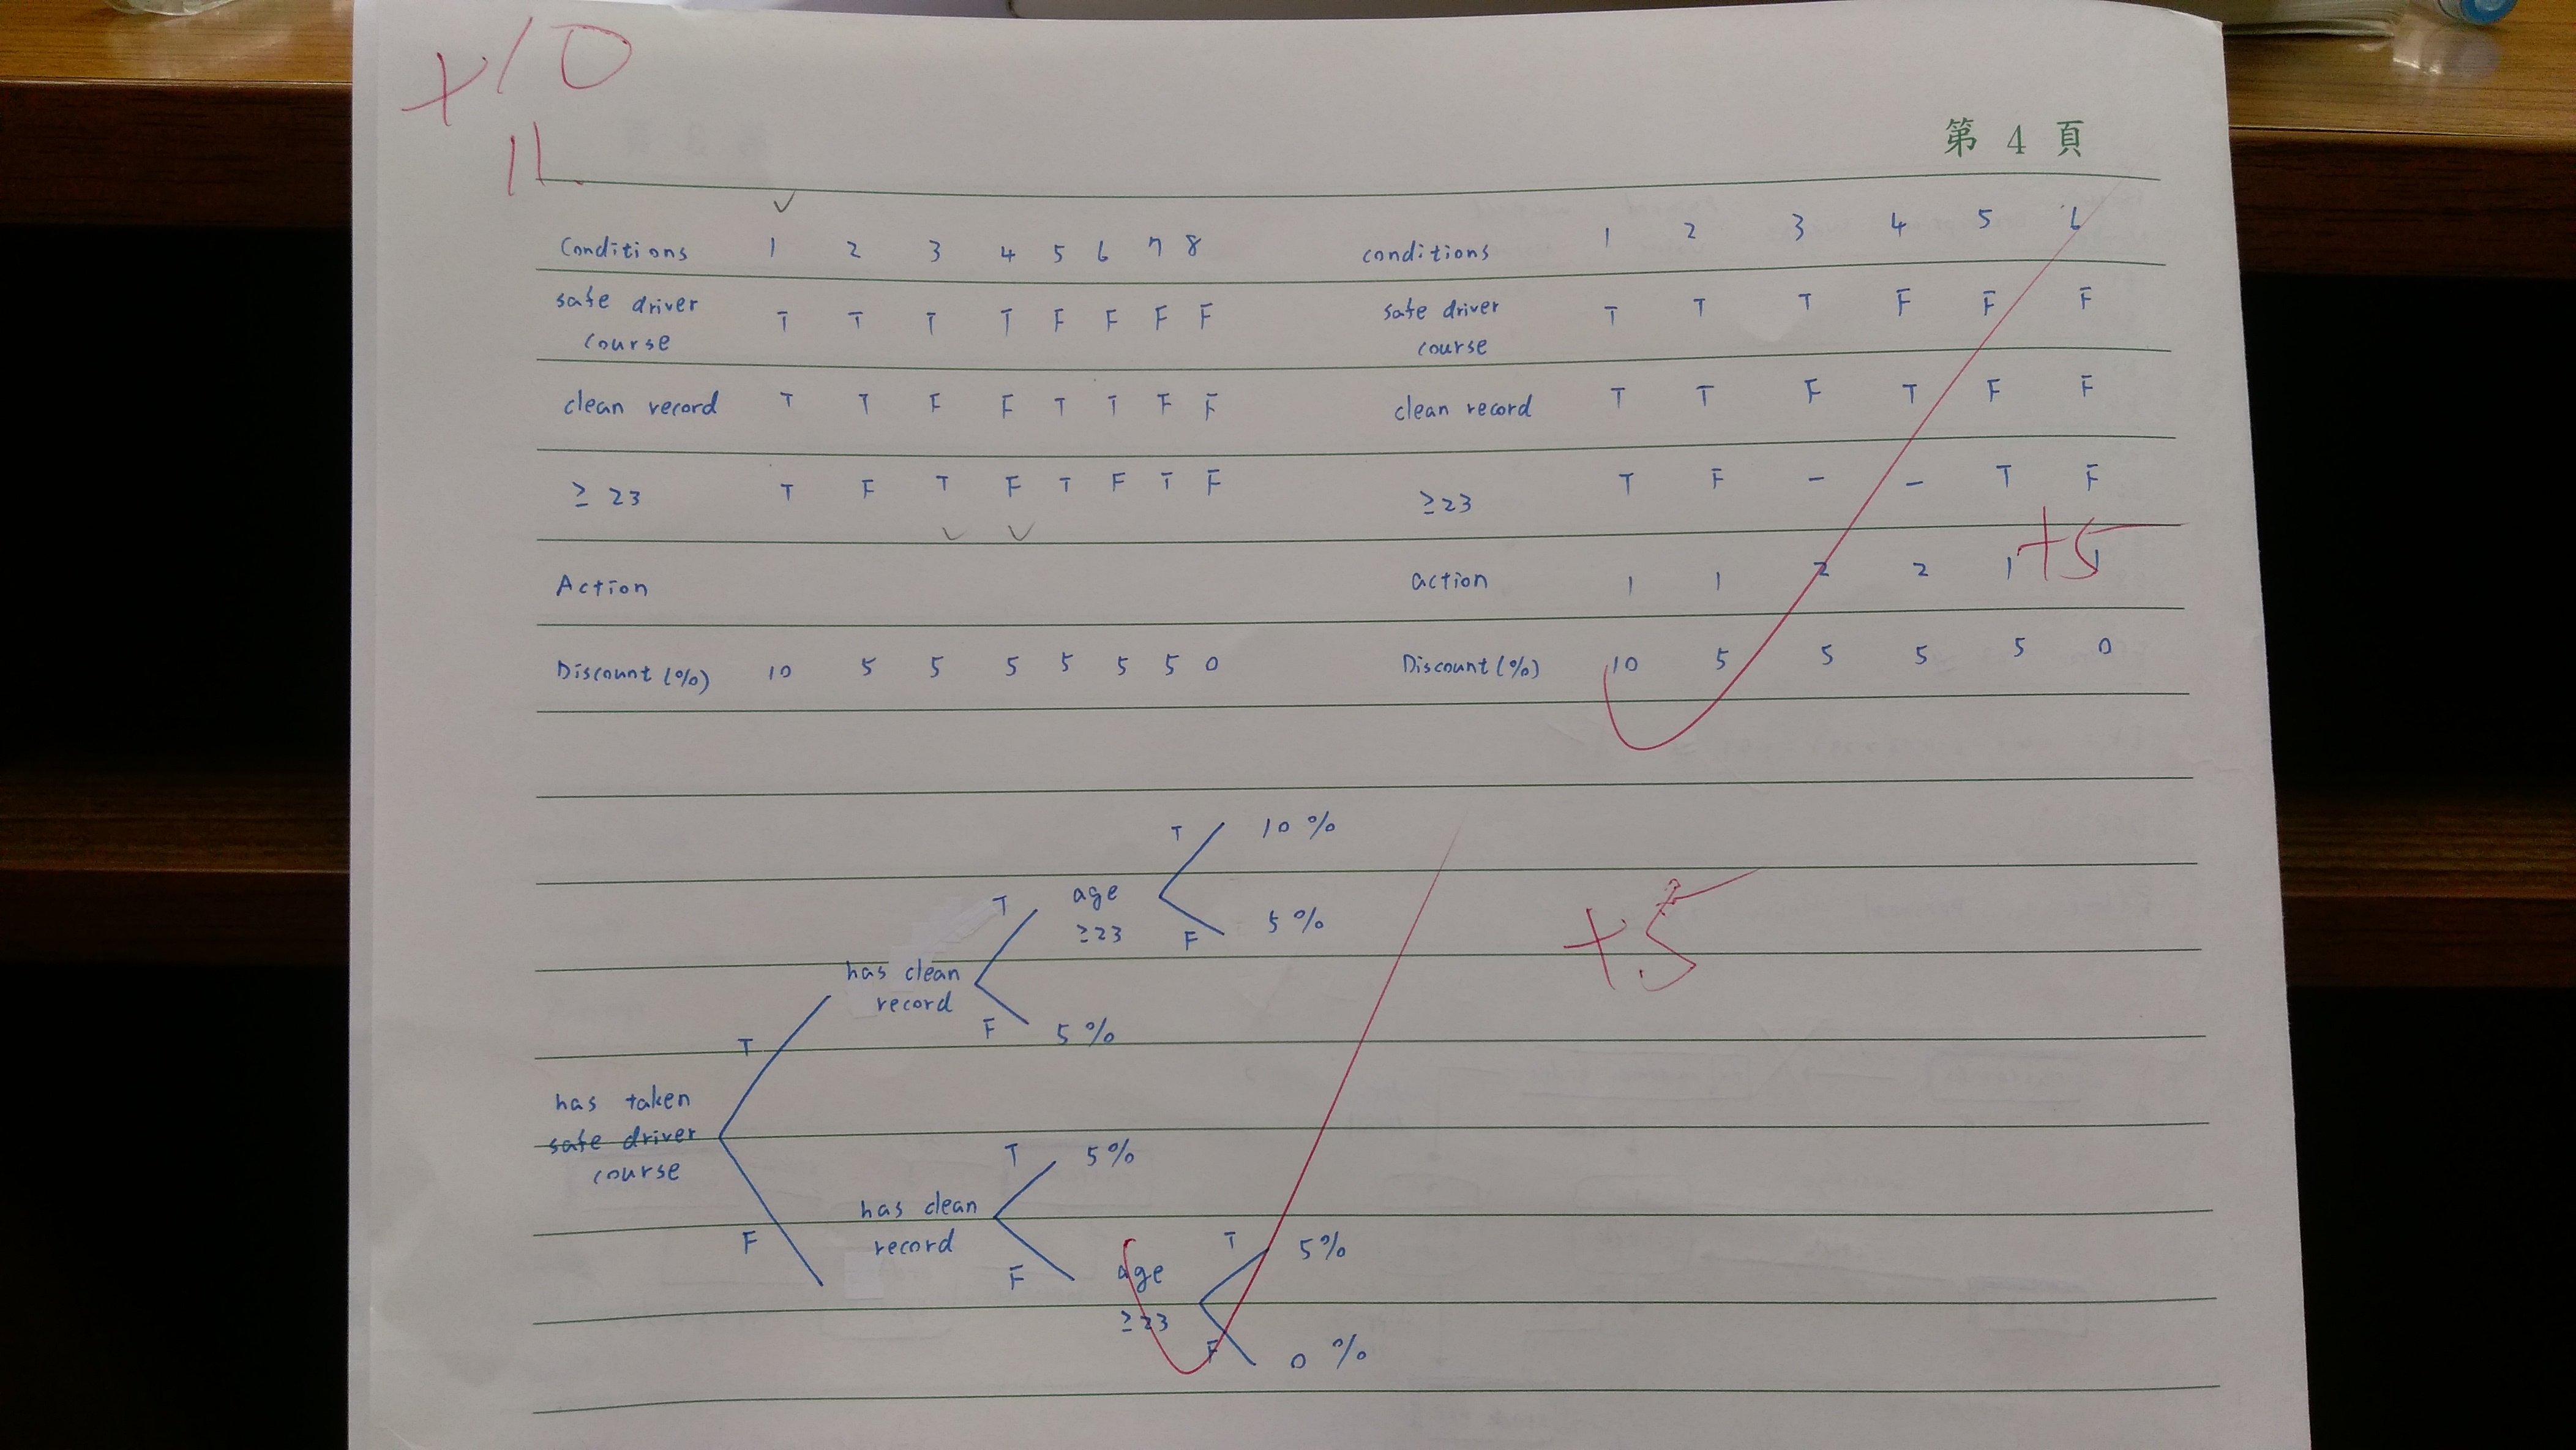 +10
11.
第 4 頁
Conditions 1 2 3 4 5 6 7 8
safe driver
course T T T T F F F F
clean record T T F F T T F F
≥ 23 T F T F T F T F
Action
Discount (%) 10 5 5 5 5 5 5 0
conditions 1 2 3 4 5 6
safe driver
course T T T F F F
clean record T T F T F F
≥23 T F - - T F
+5
action 1 1 2 2 1 1
Discount (%) 10 5 5 5 5 0
T 10 %
T age
≥23 F 5 %
has clean
record
F 5 %
T
+5
has taken
safe driver
course
T 5%
has clean
record
F
F age
≥23
T 5%
F 0 %